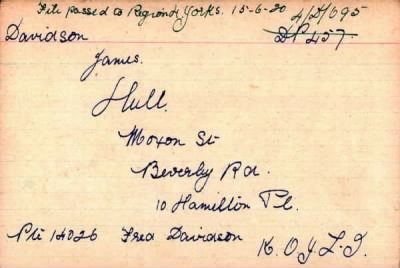 File passed to Region 4 Yorks. 15-6-20 4/D/695
Davidson DP 457.
James.
Hull.
Moxon St
Beverly Rd.
10 Hamilton Pl.
Pte 14026 Fred Davidson K.O.Y.L.I.